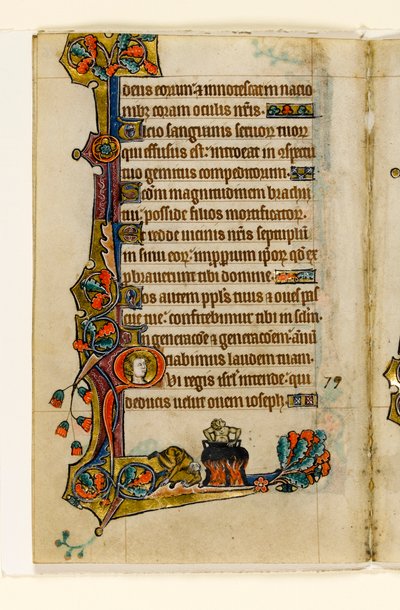 deus eorum: ⁊ innotescat in nacio
nibꝫ coram oculis nr̄is.
Ulcio sanguinis seruoꝝ tuoꝝ
qui effusus est: introeat in ɔspectu
tuo gemitus compeditorum.
Scd̄m magnitudinem brachii
tui: posside filios mortificatoꝝ.
Et redde uicinis nr̄is septuplū
in sinu eoꝝ: imp̄ꝓpium ip̄oꝝ qd̄ ex
probauerunt tibi domine.
Nos autem ppl̄s tuus ⁊ oues pas
cue tue: confitebimur tibi in sc̄lm.
In generacōe ⁊ generacōem: annū
ciabimus laudem tuam.
Qui regis isrl̄ intende: qui 79
deducis uelut ouem ioseph.